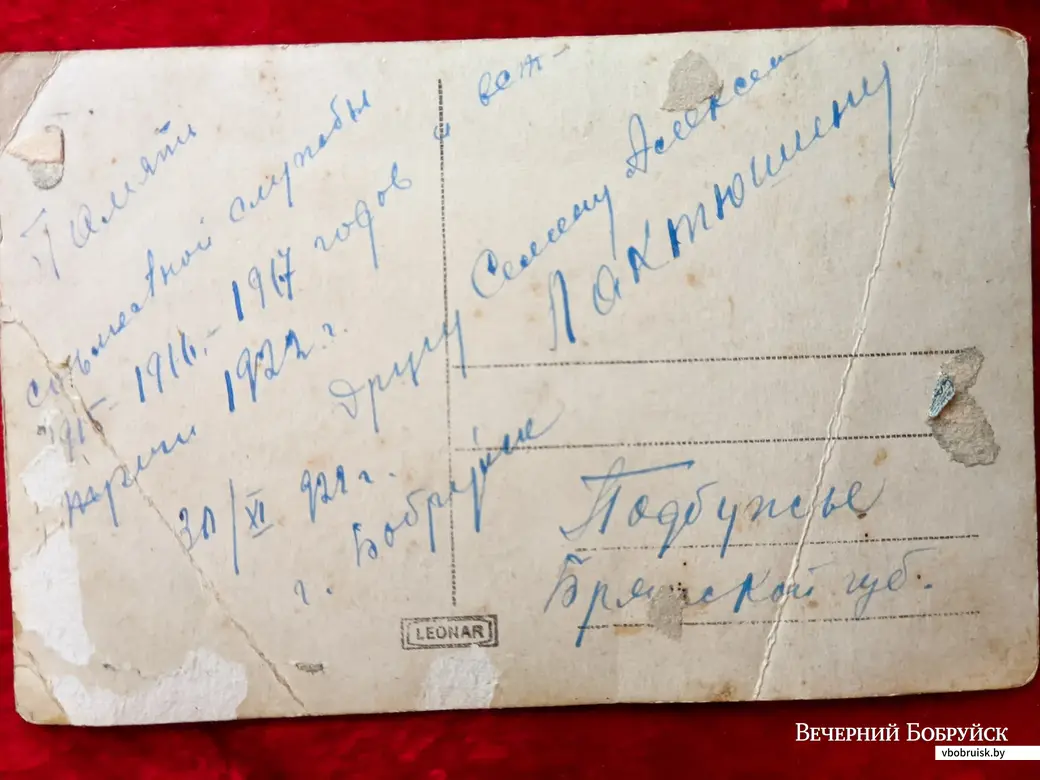 Памяти
совместной службы
1916 - 1917 годов и вст-
1922 г.
другу Семену Алексеев
Лактюшину
30/XI 922 г.
г. Бобруйск
Подбужье
Брянской губ.
LEONAR
Вечерний Бобруйск
vbobruisk.by